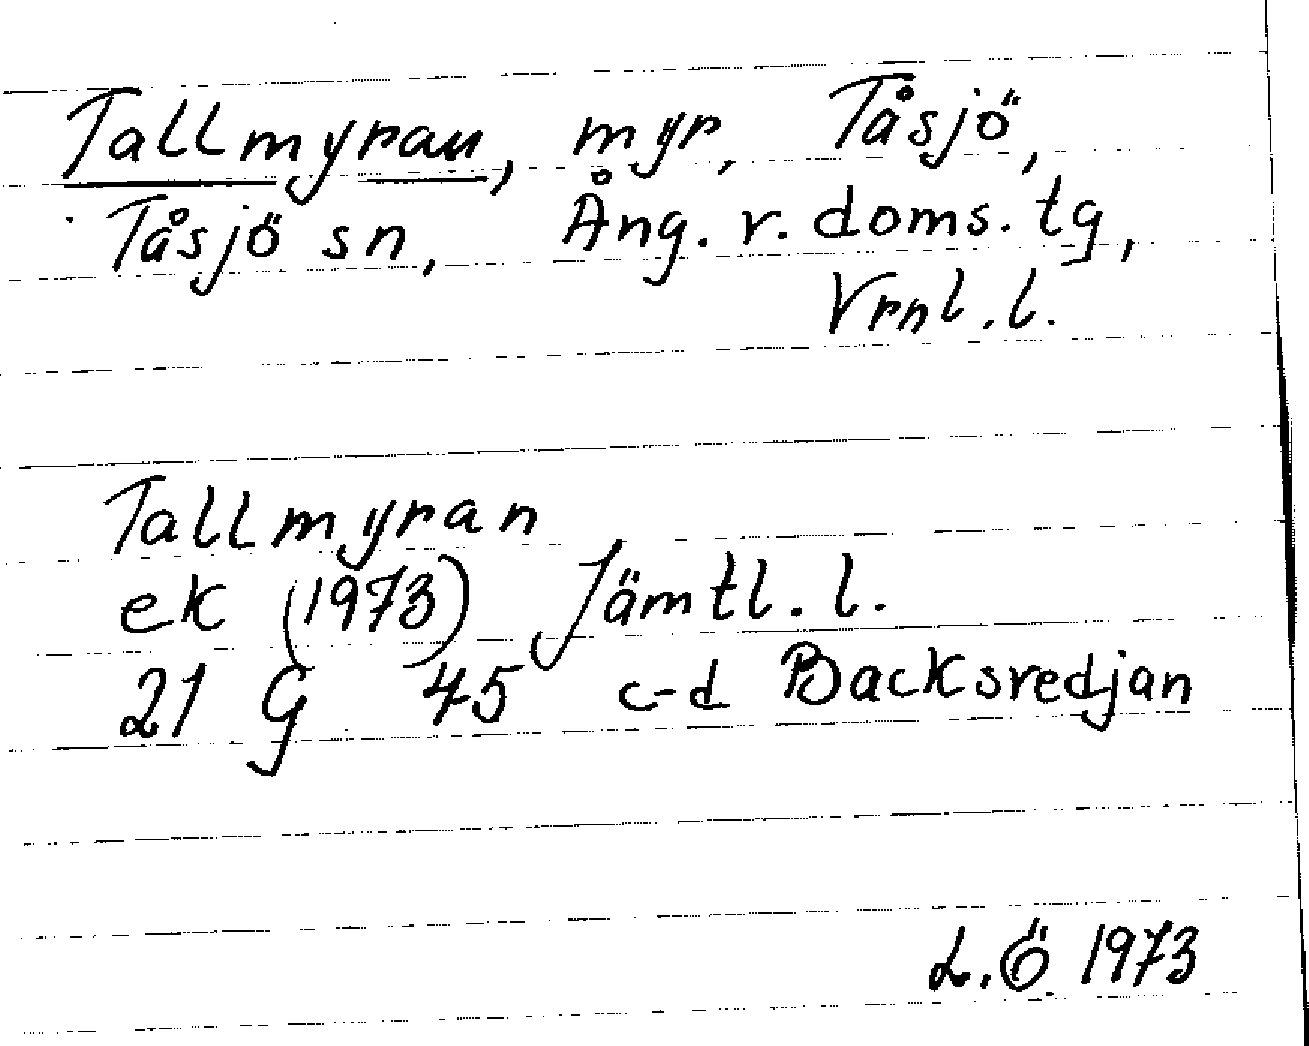 Tallmyran, myr, Tåsjö,
Tåsjö sn, Ång. v. doms. tg,
Vrnl. l.
Tallmyran
ek (1973) Jämtl. l.
21 G 45 c-d Backsredjan
L.Ö. 1973